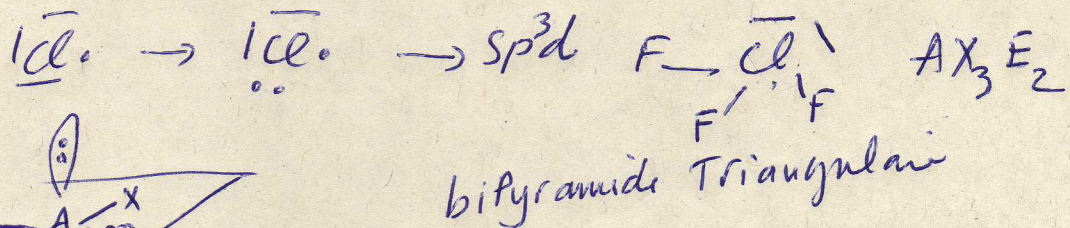 |Cl. → |Cl. → Sp³d F Cl AX₃E₂
F F
bipyramide Triangulaire
X
A